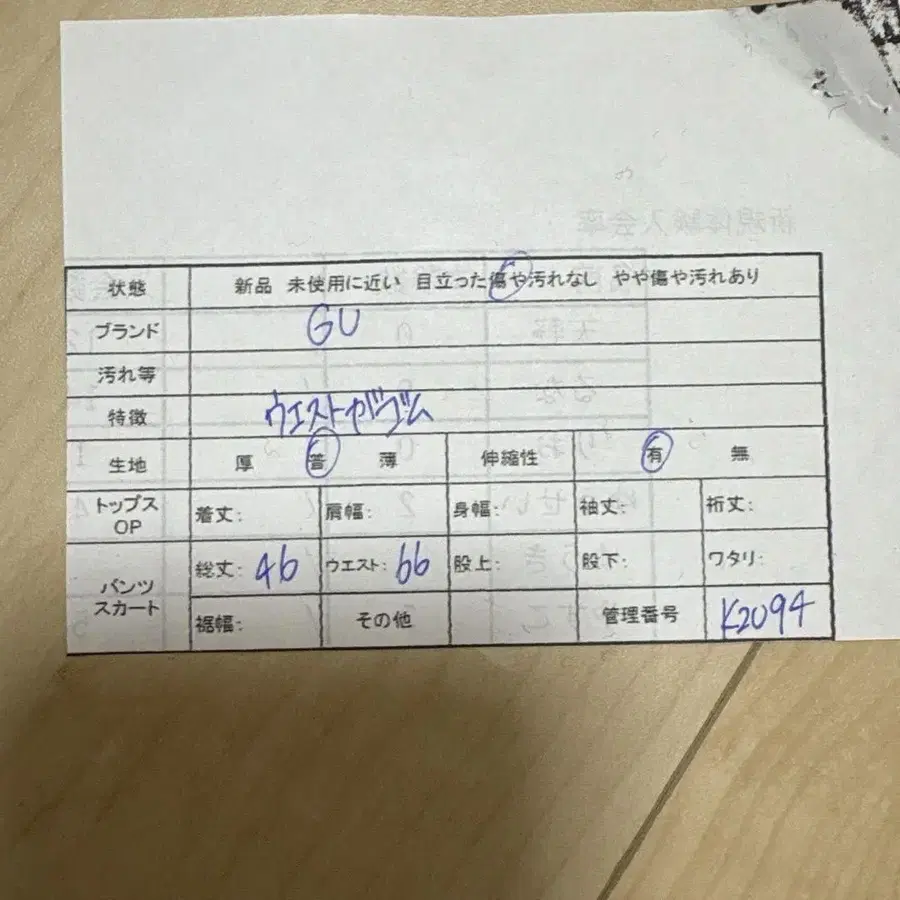 新規体験入会率
状態 新品 未使用に近い 目立った傷や汚れなし やや傷や汚れあり
ブランド GU
汚れ等
特徴 ウエストがゴム
生地 厚 普 薄 伸縮性 有 無
トップス OP 着丈: 肩幅: 身幅: 袖丈: 裄丈:
パンツ スカート 総丈: 46 ウエスト: 66 股上: 股下: ワタリ:
裾幅: その他 管理番号 K2094